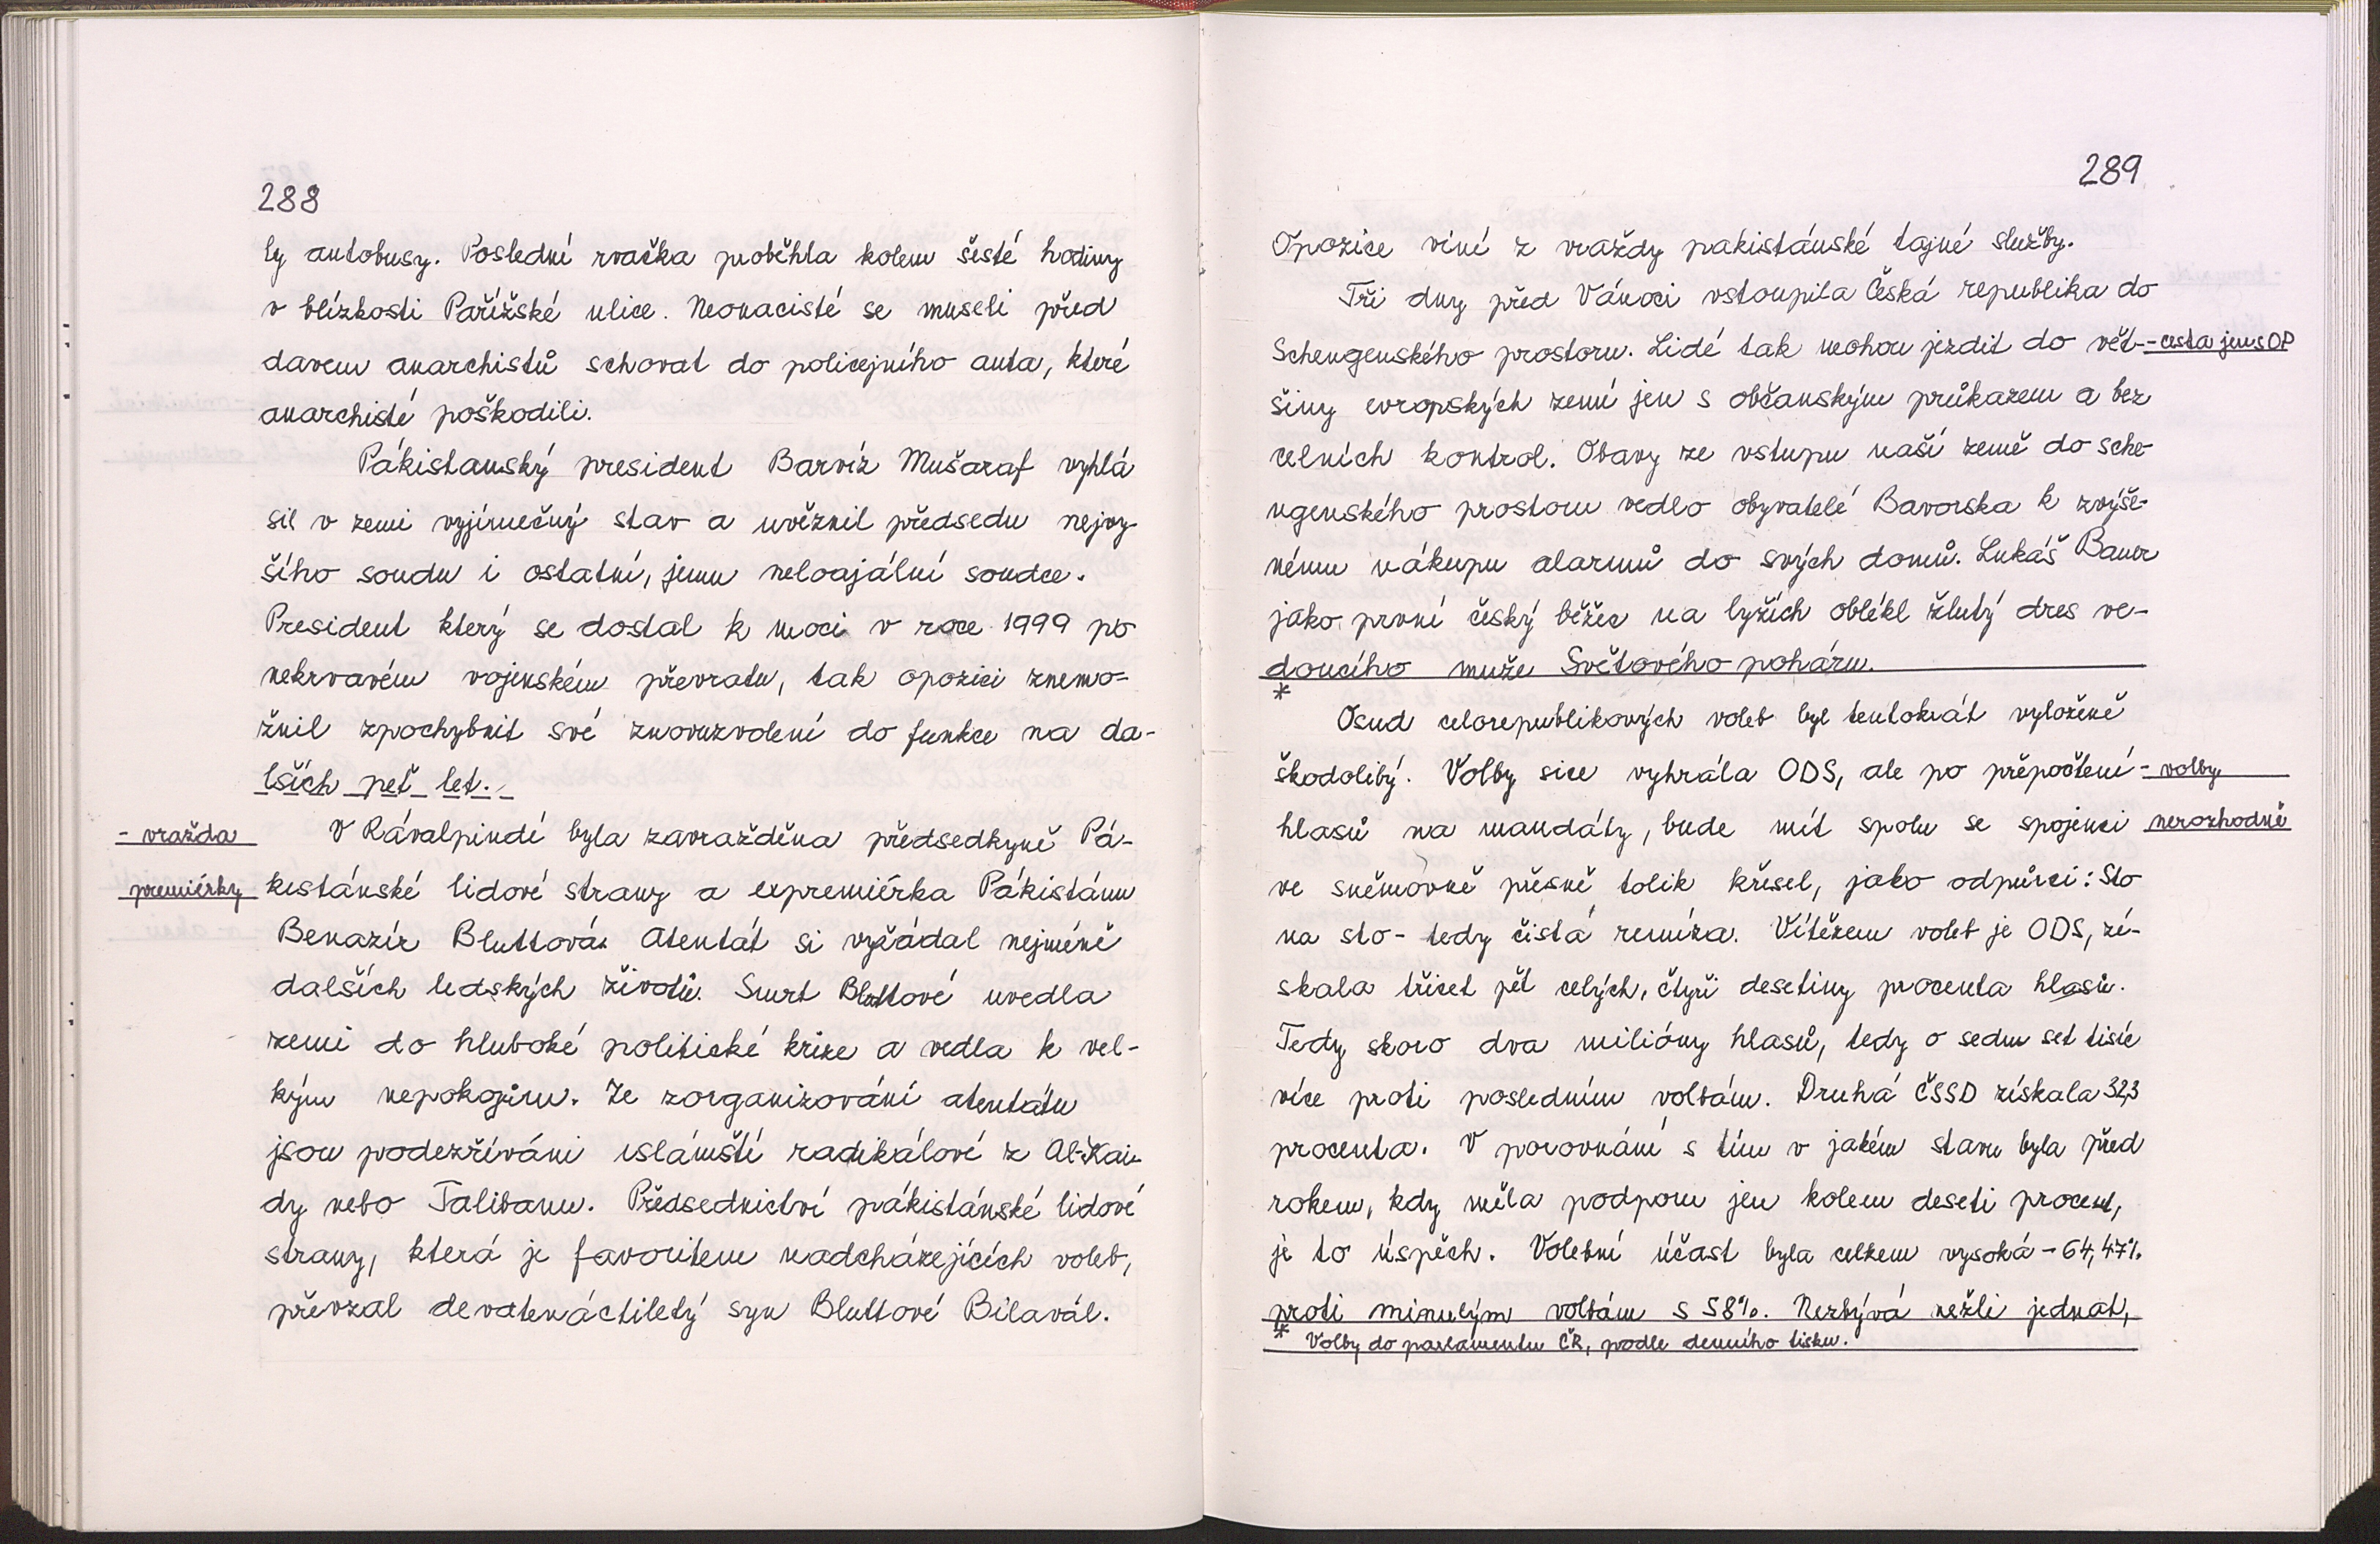 288
ly autobusy. Poslední rvačka proběhla kolem šesté hodiny
v blízkosti Pařížské ulice. Neonacisté se museli před
davem anarchistů schovat do policejního auta, které
anarchisté poškodili.
Pákistanský president Barvíz Mušaraf vyhlá
sil v zemi vyjímečný stav a uvěznil předsedu nejvy-
šího soudu i ostatní, jemu neloajální soudce.
President který se dostal k moci v roce 1999 po
nekrvavém vojenském převratu, tak opozici znemo-
žnil zpochybnit své znovuzvolení do funkce na da-
lších peť let.
- vražda
premiérky
V Rávalpindí byla zavražděna předsedkyně Pá-
kistánské lidové strany a expremiérka Pákistánu
Benazír Bluttová. Atentát si vyžádal nejméně
dalších lidských životů. Smrt Bluttové uvedla
zemi do hluboké politické krize a vedla k vel-
kým nepokojům. Ze zorganizování atentátu
jsou podezříváni islámští radikálové z Al-Kai-
dy nebo Talibanu. Předsednictví pákistánské lidové
strany, která je favoritem nadcházejících voleb,
převzal devatenáctiletý syn Bluttové Bilavál.
289
Opozice viní z vraždy pákistánské tajné služby.
Tři dny před Vánoci vstoupila Česká republika do
Schengenského prostoru. Lidé tak mohou jezdit do vět-
- cesta jen s OP
šiny evropských zemí jen s občanským průkazem a bez
celních kontrol. Obavy ze vstupu naší země do sche-
ngenského prostoru vedlo obyvatelé Bavorska k zvýše-
nému nákupu alarmů do svých domů. Lukáš Bauer
jako první český běžec na lyžích oblékl žlutý dres ve-
doucího muže Světového poháru.
*
Osud celorepublikových voleb byl tentokrát vyloženě
škodolibý. Volby sice vyhrála ODS, ale po přepočtení
- volby
hlasů na mandáty, bude mít spolu se spojenci
nerozhodně
ve sněmovně přesně tolik křesel, jako odpůrci: Sto
na sto - tedy čistá remíza. Vítězem voleb je ODS, zí-
skala třicet pět celých, čtyři desetiny procenta hlasů.
Tedy skoro dva milióny hlasů, tedy o sedm set tisíc
více proti posledním volbám. Druhá ČSSD získala 32,3
procenta. V porovnání s tím v jakém stavu byla před
rokem, kdy měla podporu jen kolem deseti procent,
je to úspěch. Volební účast byla celkem vysoká - 64,47%
proti minulým volbám s 58%. Nezbývá nežli jednat,
* Volby do parlamentu ČR, podle denního tisku.